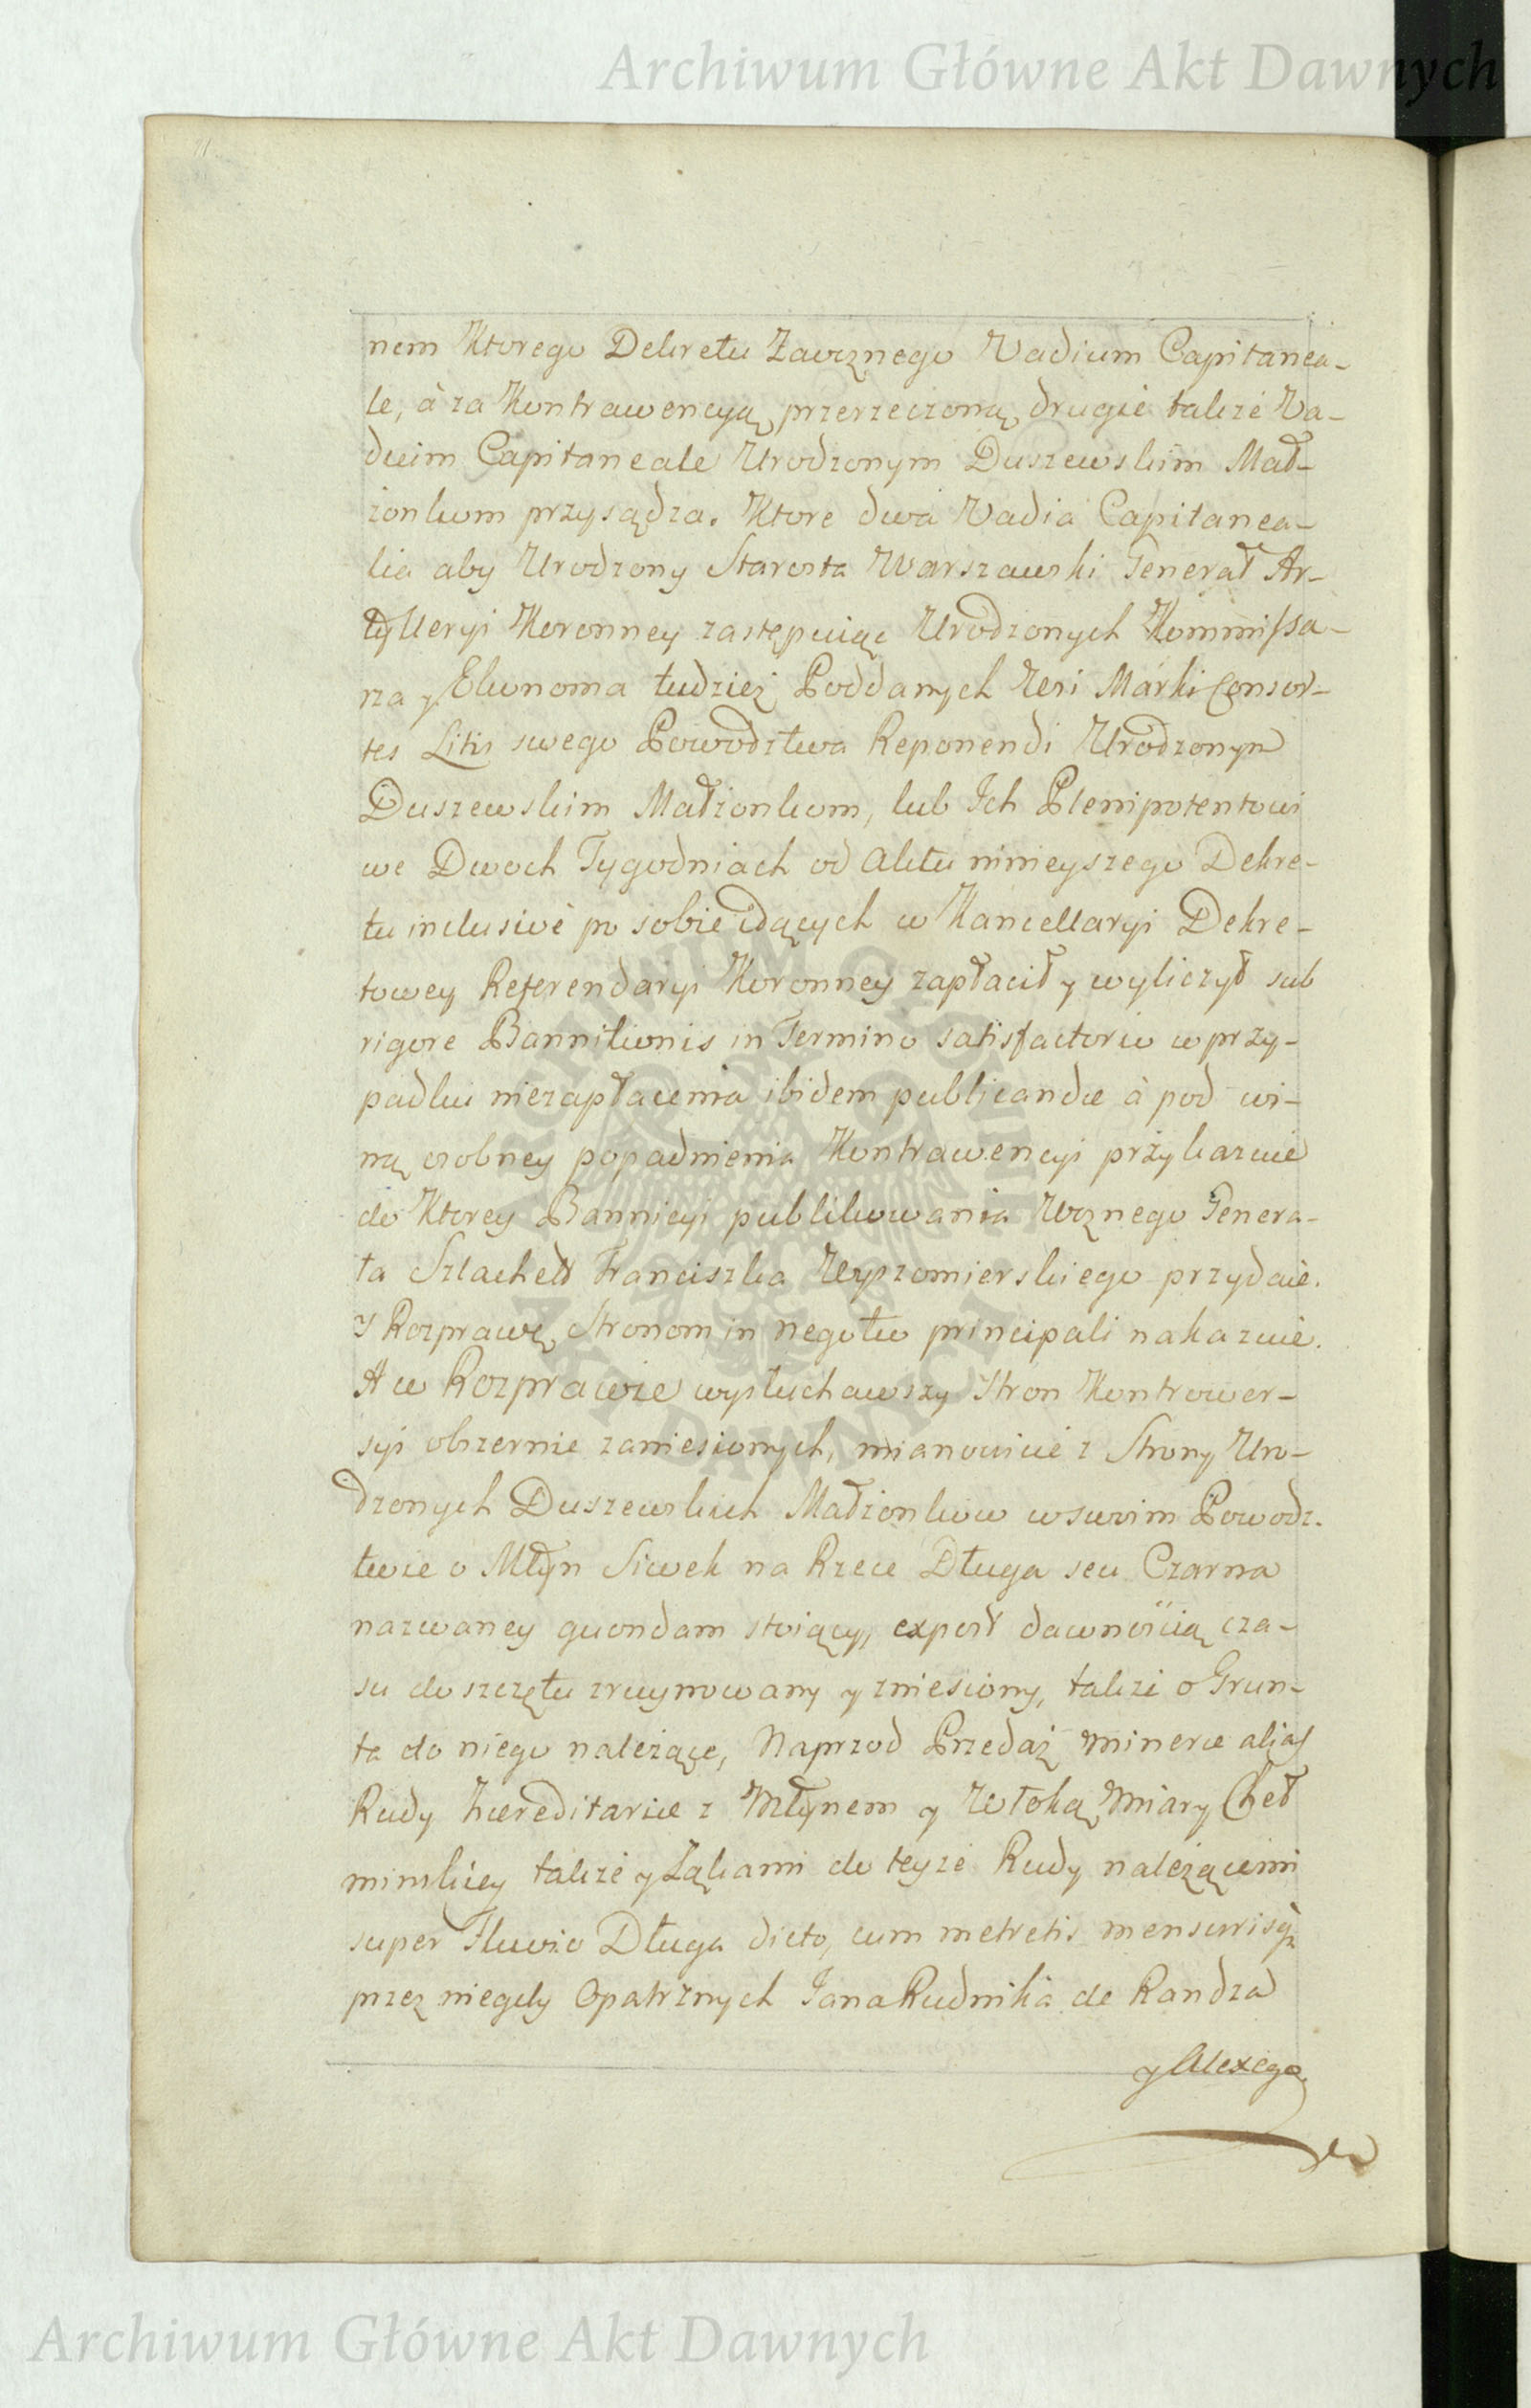 Archiwum Główne Akt Dawnych
nem Ktorego Dekretu Zaocznego Vadium Capitanea-
le, à za Kontrawencyą przerzeczoną drugie także Va-
dium Capitaneale Urodzonym Duszewskim Mał-
żonkom przysądza. Ktore dwa Vadia Capitanea-
lia aby Urodzony Starosta Warszawski Generał Ar-
tylleryi Koronney zastępuiąc Urodzonych Kommissa-
rza y Ekonoma tudzież Poddanych Wsi Marki Consor-
tes Litis swego Powodztwa Reponendi Urodzonym
Duszewskim Małżonkom, lub Ich Plenipotentowi
we Dwoch Tygodniach od Aktu ninieyszego Dekre-
tu inclusivè po sobie idących w Kancellaryi Dekre-
towey Referendaryi Koronney zapłacił y wyliczył sub
rigore Bannitionis in Termino satisfactorio w przy-
padku niezapłacenia ibidem publicandae à pod wi-
ną osobney popadnienia Kontrawencyi przykazuie
do Ktorey Bannicyi publikowania Woznego Genera-
ła Szlachet Franciszka Wyszomierskiego przydaie.
Y Rozprawę Stronom in negotio principali nakazuie.
A w Rozprawie wysłuchawszy Stron Kontrower-
syi obszernie zaniesionych, mianowicie z Strony Uro-
dzonych Duszewskich Małżonkow w swoim Powodz-
twie o Młyn Siwek na Rzece Długa seu Czarna
nazwaney quondam stoiący, expost dawnością cza-
su do szczętu zruynowany y zniesiony, także o Grun-
ta do niego należące, Naprzod Przedaż minerae alias
Rudy haereditariae z Młynem y Włoką Miary Cheł
minskiey także y Łąkami do teyże Rudy należącemi
super Fluvio Długa dicto, cum metretis mensurisq₃
przez niegdy Opatrznych Jana Rudnika de Kandza
y Alexego
Archiwum Główne Akt Dawnych